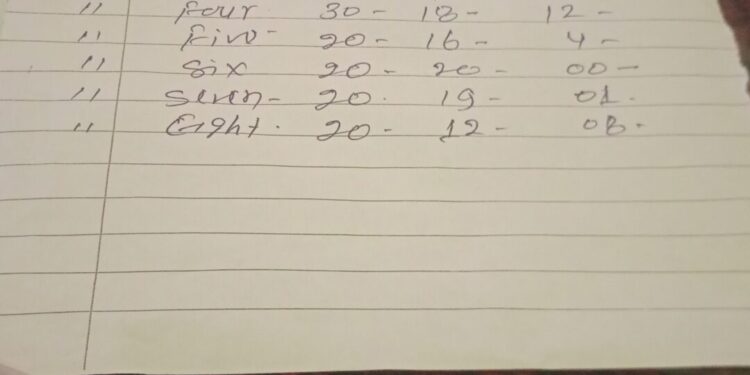 " Four. 30 - 18 - 12 -
" Five - 20 - 16 - 4 -
" Six 20 - 20 - 00 -
" Seven - 20. 19 - 01.
" Eight. 20 - 12 - 08 -